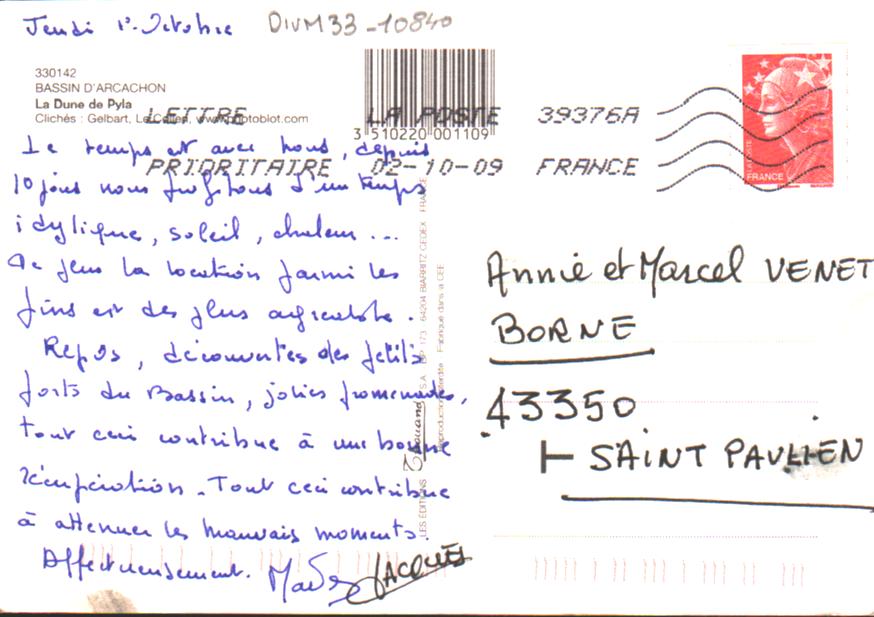 Jeudi 1er Octobre
DIVM33-10840
330142
BASSIN D'ARCACHON
La Dune de Pyla
Clichés : Gelbart, Le Collen, www.photoblot.com
3 510220 001109
LETTRE
PRIORITAIRE
LA POSTE 39376A
02-10-09 FRANCE
LA POSTE
FRANCE
Le temps est avec nous, depuis
10 jours nous profitons d'un temps
idylique, soleil, chaleur ...
De plus la location parmi les
pins est des plus agréable.
Repos, découvertes des petits
ports du Bassin, jolies promenades,
tout ceci contribue à une bonne
récupération. Tout ceci contribue
à attenuer les mauvais moments.
Affectueusement.
JACQUES
LES ÉDITIONS S.A. BP 173 64204 BIARRITZ CEDEX FRANCE
Reproduction interdite Fabriqué dans la CEE
Annie et Marcel VENET
BORNE
43350
SAINT PAULIEN